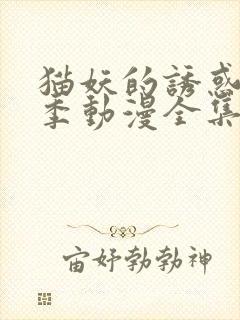 猫妖的誘惑
季動漫全集
宙好勃勃神